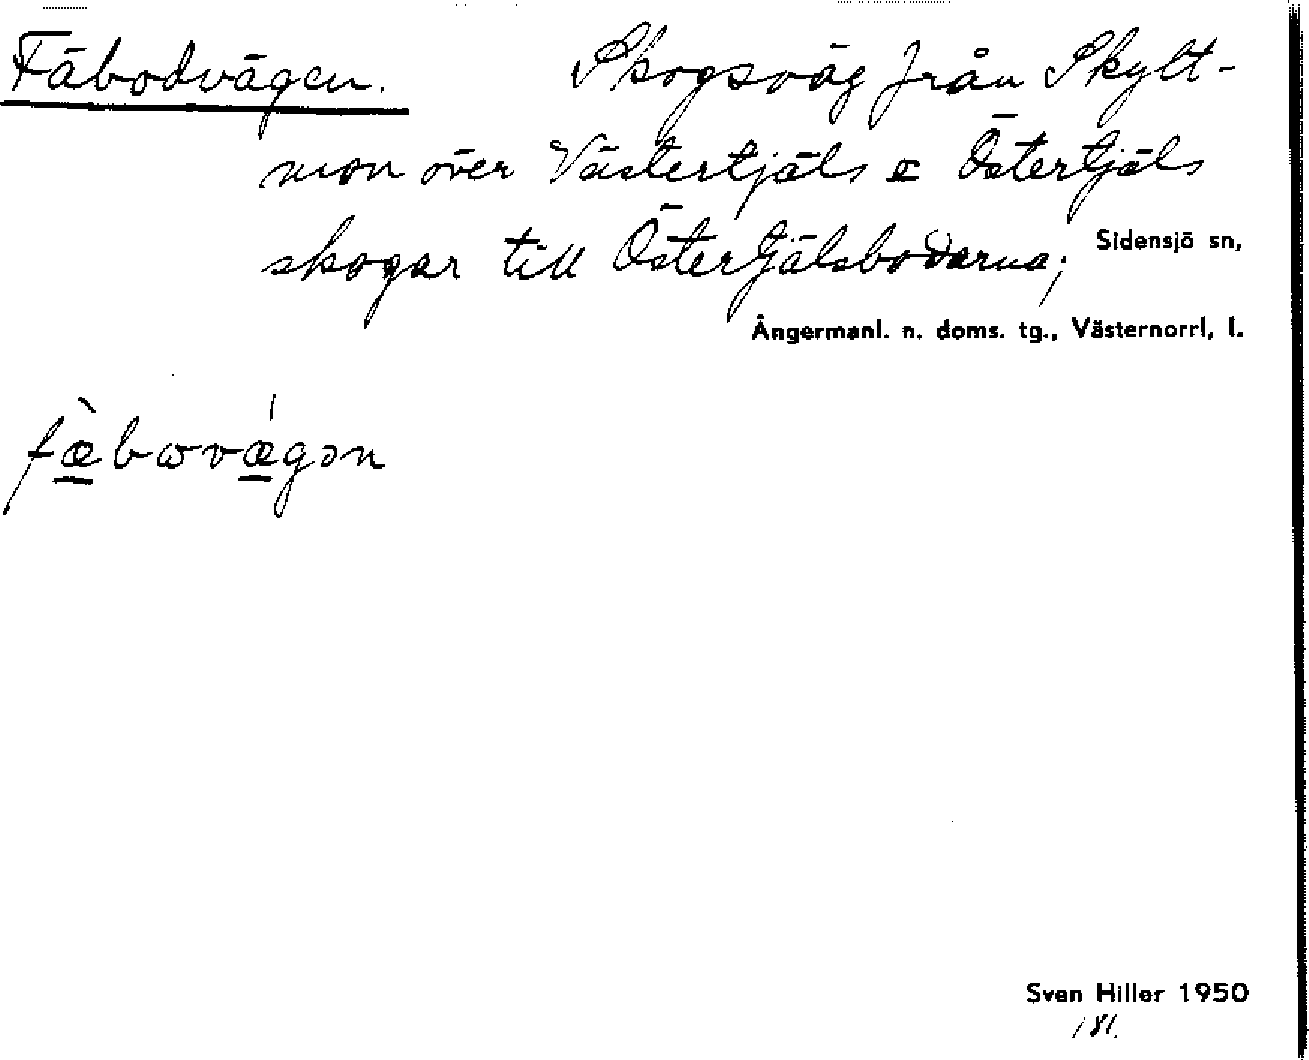 Fäbodvägen. Skogsväg från Skylt-
mon över Västertjäls o Östertjäls
skogar till Östertjälsbodarna;
Sidensjö sn,
Ångermanl. n. doms. tg., Västernorrl, l.
fæ̀bωvǽgən
Sven Hiller 1950
181.